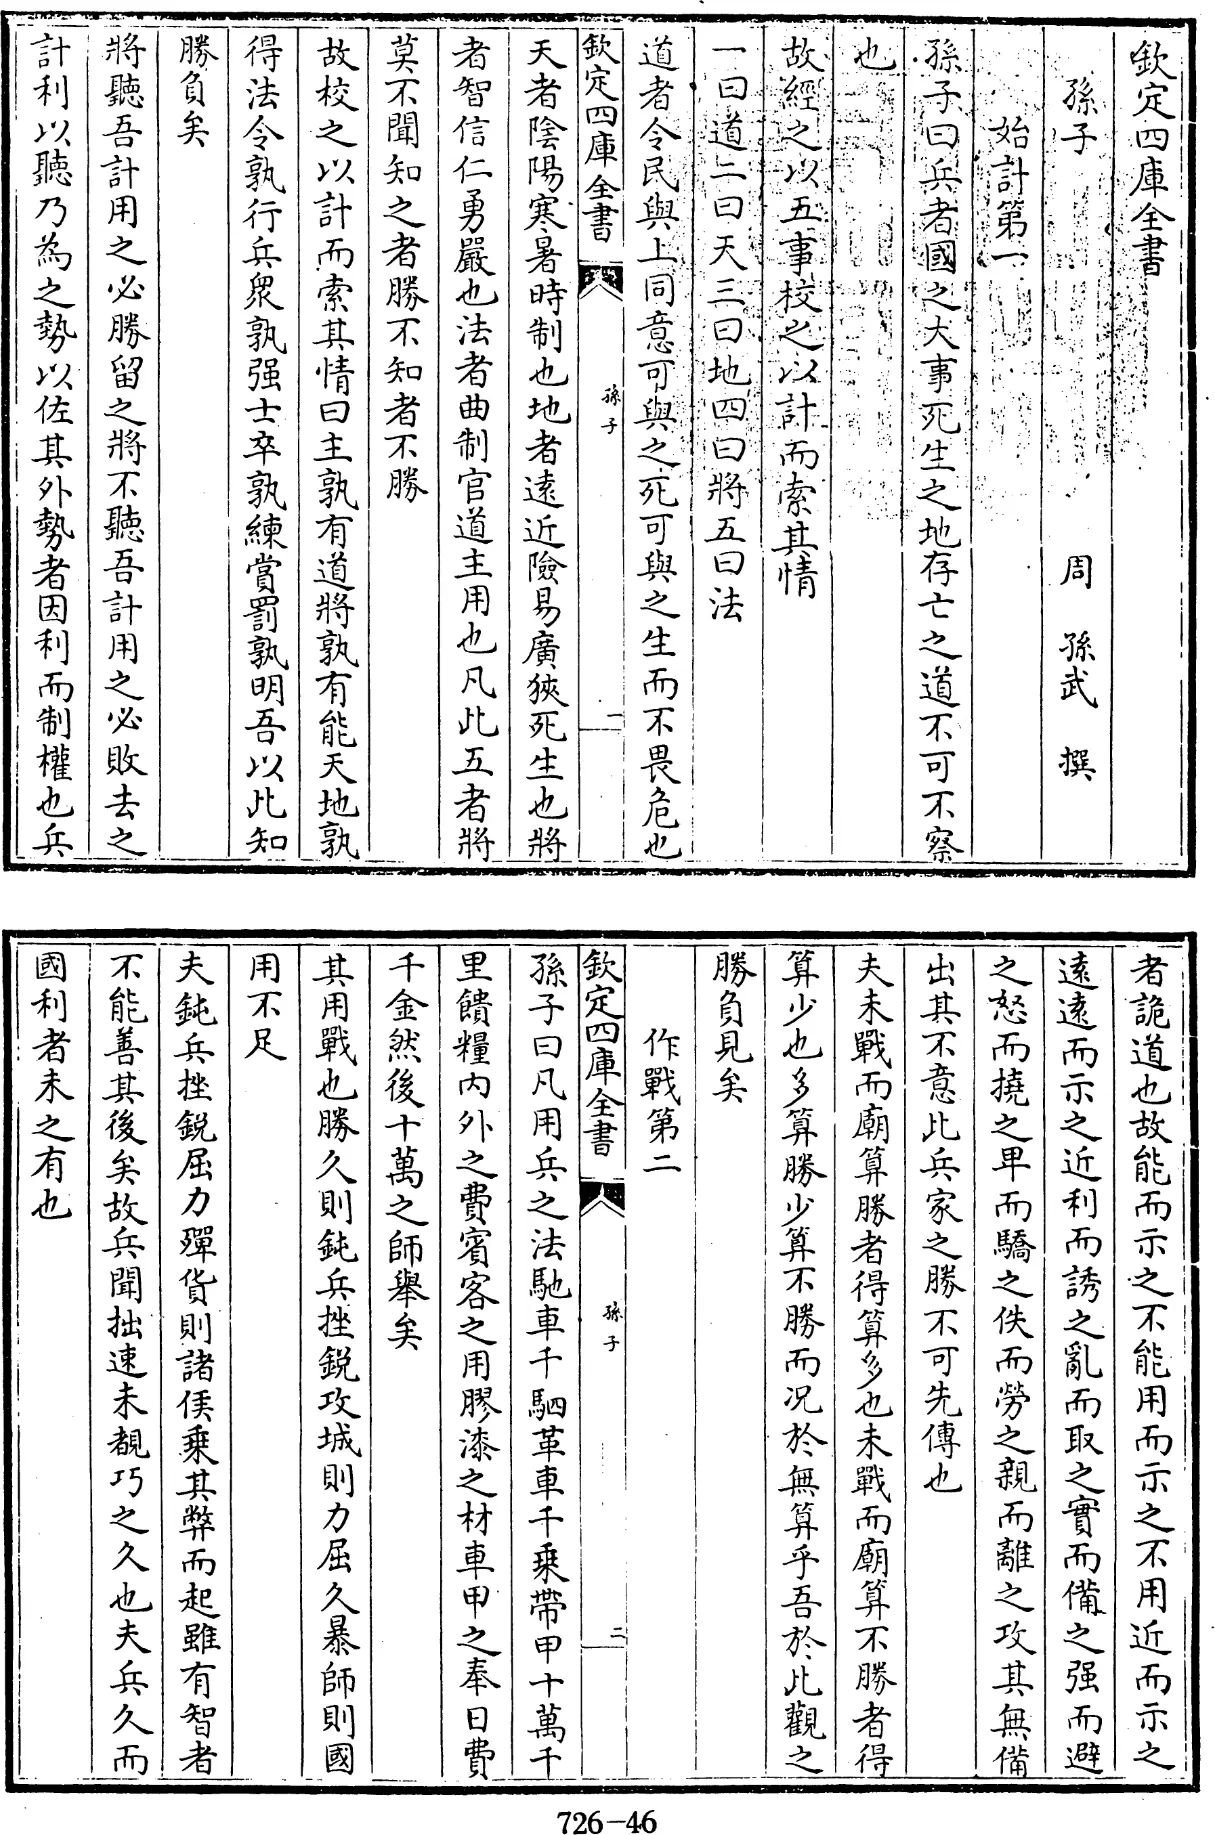 欽定四庫全書
孫子　周　孫武　撰
始計第一
孫子曰兵者國之大事死生之地存亡之道不可不察
也
故經之以五事校之以計而索其情
一曰道二曰天三曰地四曰將五曰法
道者令民與上同意可與之死可與之生而不畏危也
欽定四庫全書　孫子　一
天者陰陽寒暑時制也地者遠近險易廣狹死生也將
者智信仁勇嚴也法者曲制官道主用也凡此五者將
莫不聞知之者勝不知者不勝
故校之以計而索其情曰主孰有道將孰有能天地孰
得法令孰行兵眾孰强士卒孰練賞罰孰明吾以此知
勝負矣
將聽吾計用之必勝留之將不聽吾計用之必敗去之
計利以聽乃為之勢以佐其外勢者因利而制權也兵
者詭道也故能而示之不能用而示之不用近而示之
遠遠而示之近利而誘之亂而取之實而備之强而避
之怒而撓之卑而驕之佚而勞之親而離之攻其無備
出其不意此兵家之勝不可先傳也
夫未戰而廟算勝者得算多也未戰而廟算不勝者得
算少也多算勝少算不勝而况於無算乎吾於此觀之
勝負見矣
作戰第二
欽定四庫全書　孫子　二
孫子曰凡用兵之法馳車千駟革車千乘帶甲十萬千
里饋糧內外之費賓客之用膠漆之材車甲之奉日費
千金然後十萬之師舉矣
其用戰也勝久則鈍兵挫銳攻城則力屈久暴師則國
用不足
夫鈍兵挫銳屈力殫貨則諸侯乘其弊而起雖有智者
不能善其後矣故兵聞拙速未覩巧之久也夫兵久而
國利者未之有也
726-46